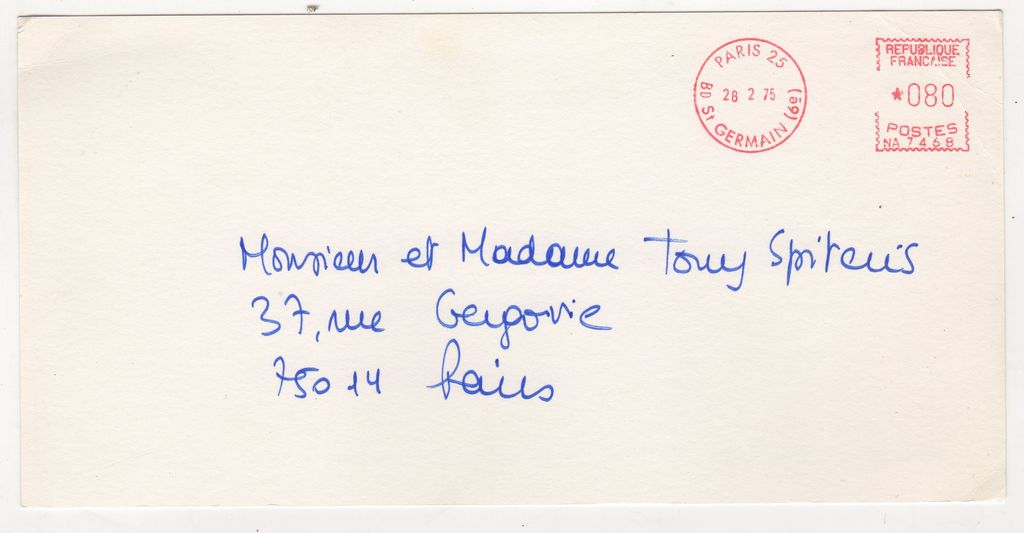 PARIS 25
28 2 75
BD St GERMAIN (6e)
REPUBLIQUE
FRANCAISE
*080
POSTES
NA 7468
Monsieur et Madame Tony Spiteris
37, rue Gergovie
75014 Paris